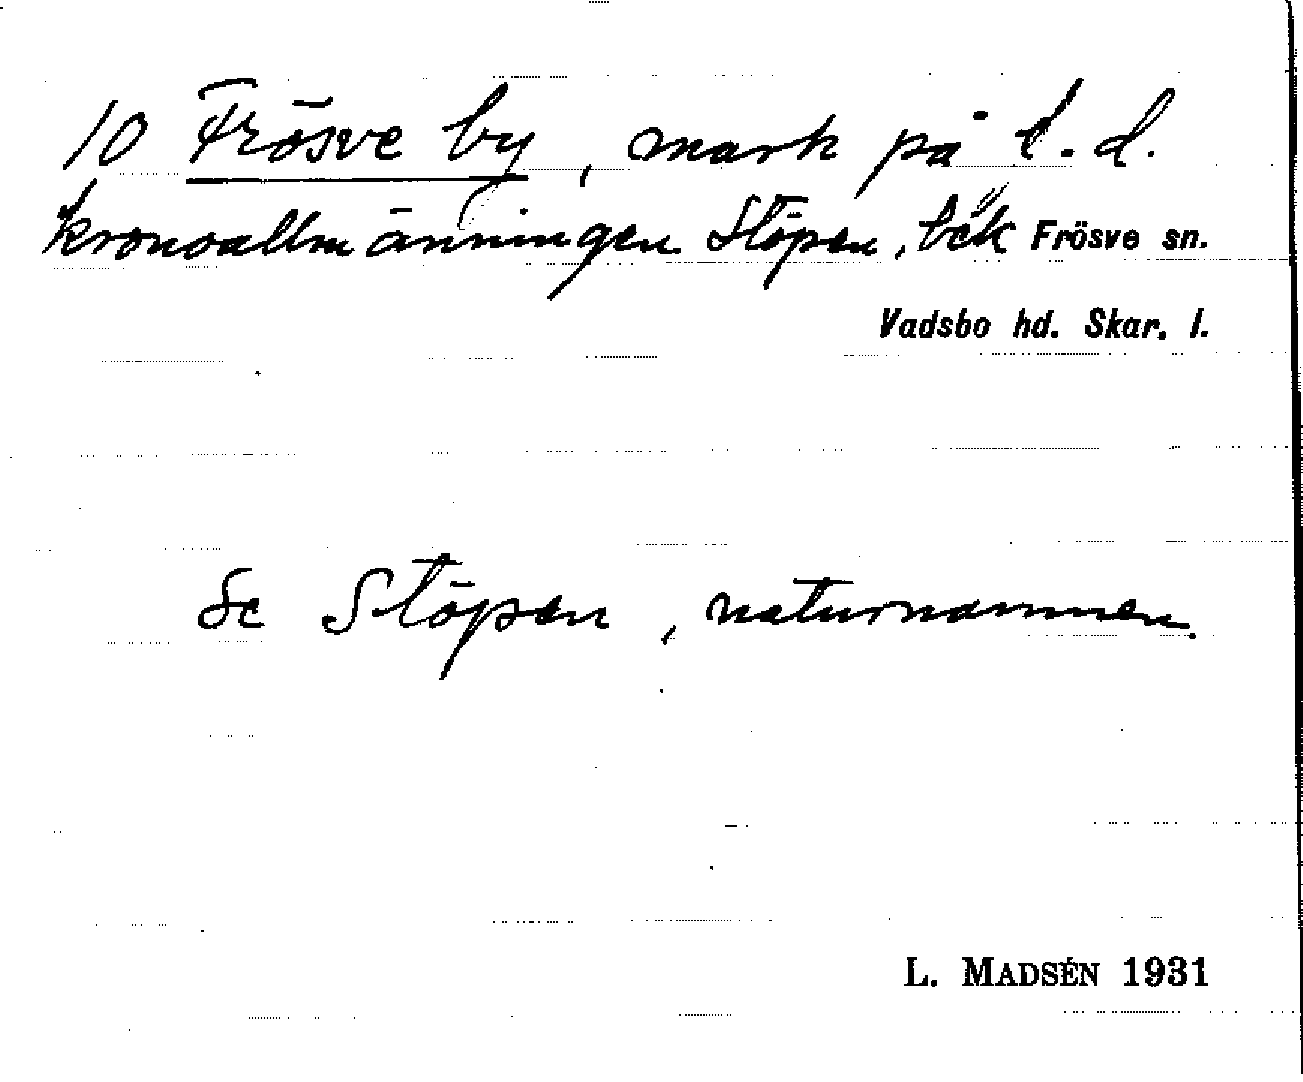 10 Frösve by, mark på f.d.
kronoallmänningen Stöpen, Frösve sn.
Vadsbo hd. Skar. l.
Se Stöpen, naturnamnen.
L. MADSÉN 1931